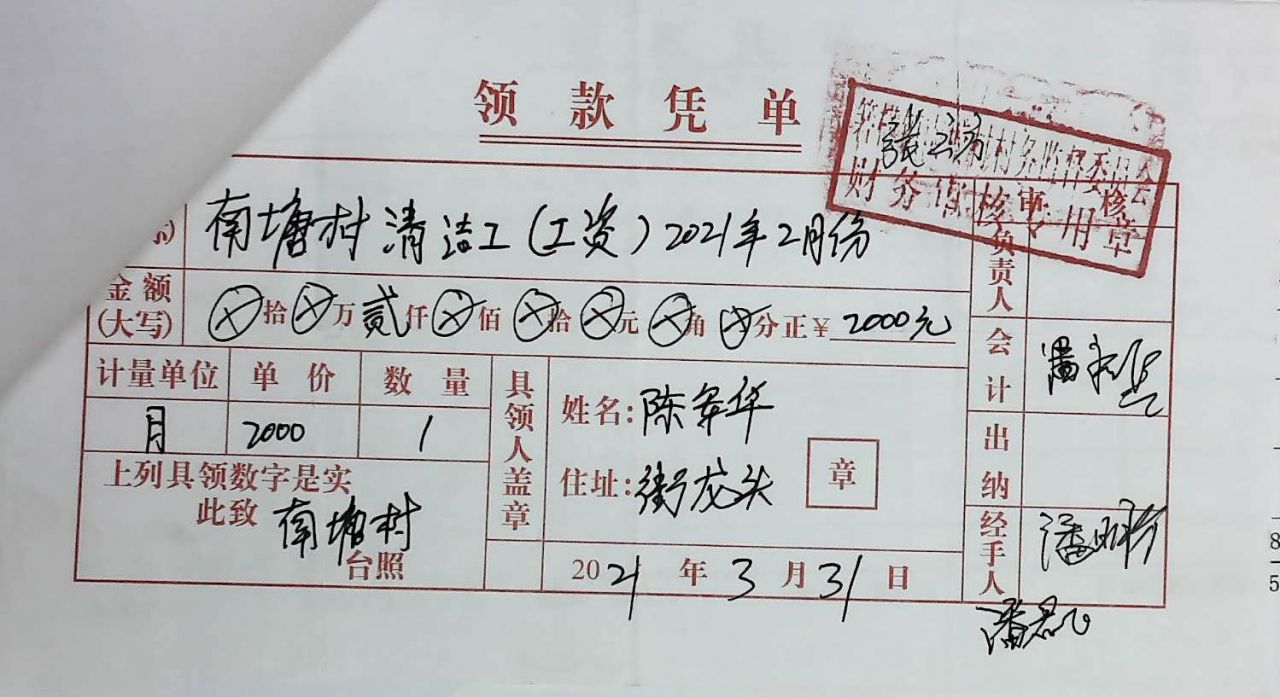 领款凭单
财务审核专用章
南塘村清洁工(工资)2021年2月份
金额(大写) ⊗拾⊗万贰仟⊗佰⊗拾⊗元⊗角⊗分正¥2000元
计量单位 单价 数量
月 2000 1
上列具领数字是实
此致 南塘村
台照
具领人盖章
姓名:陈
住址:街龙头
章
2021年3月31日
审核
负责人
会计
出纳
经手人
8
5